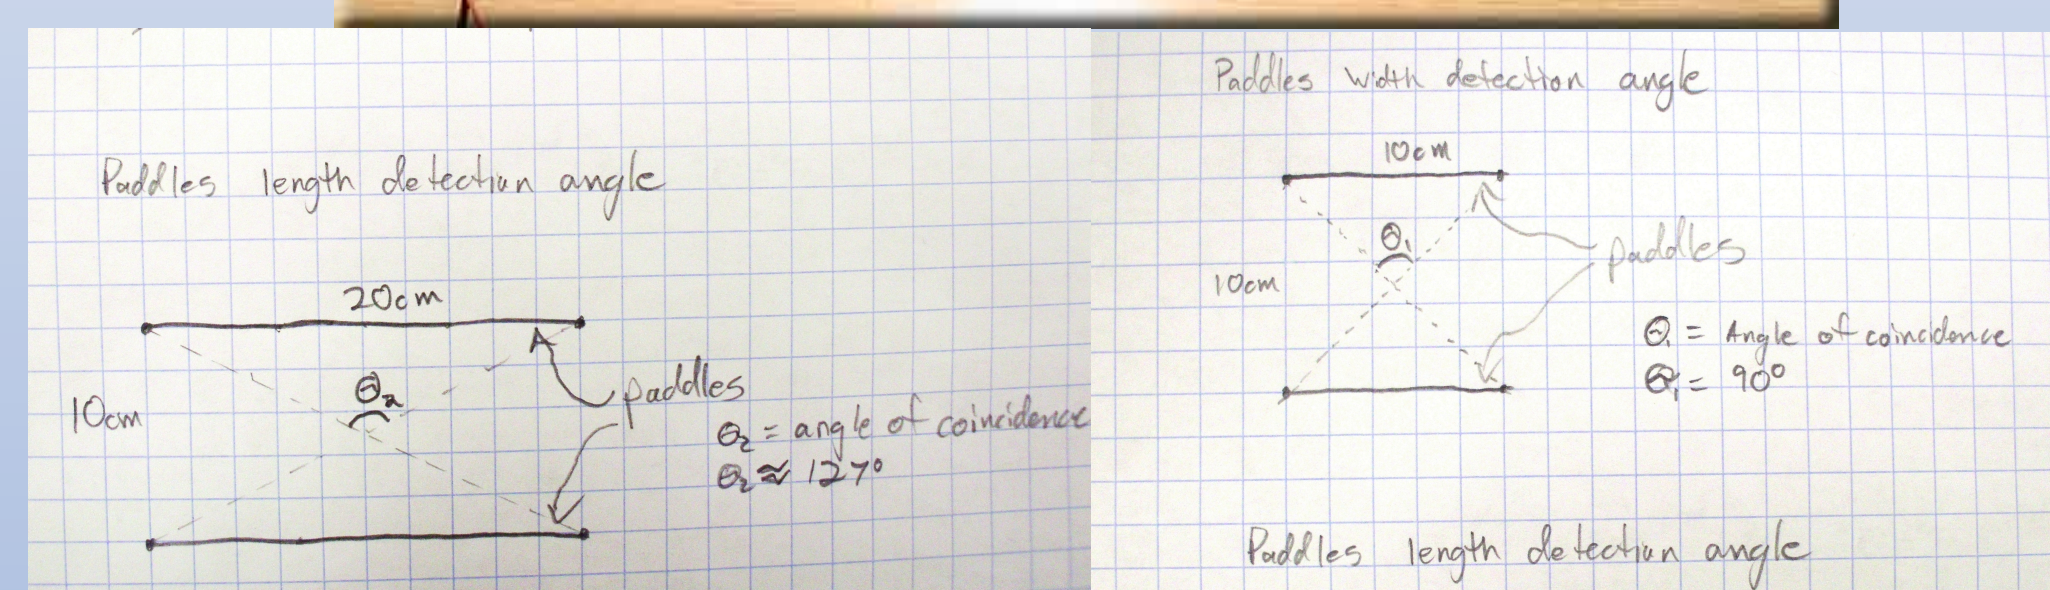 Paddles length detection angle
20cm
Θ₂
10cm
paddles
Θ₂ = angle of coincidence
Θ₂ ≈ 127°
Paddles width detection angle
10cm
Θ₁
paddles
10cm
Θ₁ = Angle of coincidence
Θ₁ = 90°
Paddles length detection angle